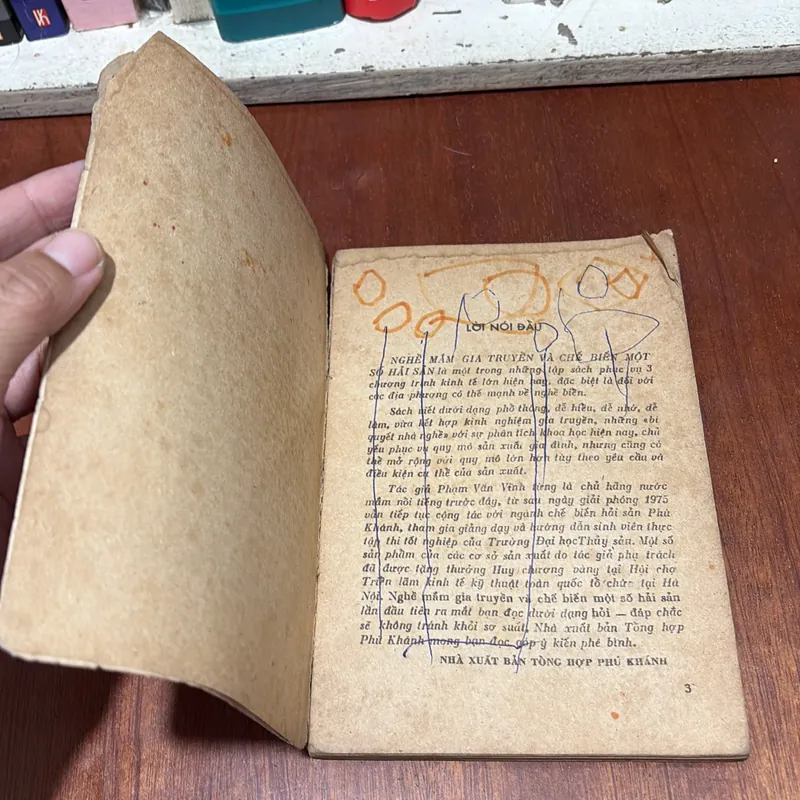 LỜI NÓI ĐẦU
NGHỀ MẮM GIA TRUYỀN VÀ CHẾ BIẾN MỘT
SỐ HẢI SẢN là một trong những tập sách phục vụ 3
chương trình kinh tế lớn hiện nay, đặc biệt là đối với
các địa phương có thế mạnh về nghề biển.
Sách viết dưới dạng phổ thông, dễ hiểu, dễ nhớ, dễ
làm, vừa kết hợp kinh nghiệm gia truyền, những «bí
quyết nhà nghề» với sự phân tích khoa học hiện nay, chủ
yếu phục vụ quy mô sản xuất gia đình, nhưng cũng có
thể mở rộng với quy mô lớn hơn tùy theo yêu cầu và
điều kiện cụ thể của sản xuất.
Tác giả Phạm Văn Vinh từng là chủ hãng nước
mắm nổi tiếng trước đây, từ sau ngày giải phóng 1975
vẫn tiếp tục cộng tác với ngành chế biến hải sản Phú
Khánh, tham gia giảng dạy và hướng dẫn sinh viên thực
tập thi tốt nghiệp của Trường Đại họcThủy sản. Một số
sản phẩm của các cơ sở sản xuất do tác giả phụ trách
đã được tặng thưởng Huy chương vàng tại Hội chợ
Triển lãm kinh tế kỹ thuật toàn quốc tổ chức tại Hà
Nội. Nghề mắm gia truyền và chế biến một số hải sản
lần đầu tiên ra mắt bạn đọc dưới dạng hỏi — đáp chắc
sẽ không tránh khỏi sơ suất. Nhà xuất bản Tổng hợp
Phú Khánh mong bạn đọc góp ý kiến phê bình.
NHÀ XUẤT BẢN TỔNG HỢP PHÚ KHÁNH
3